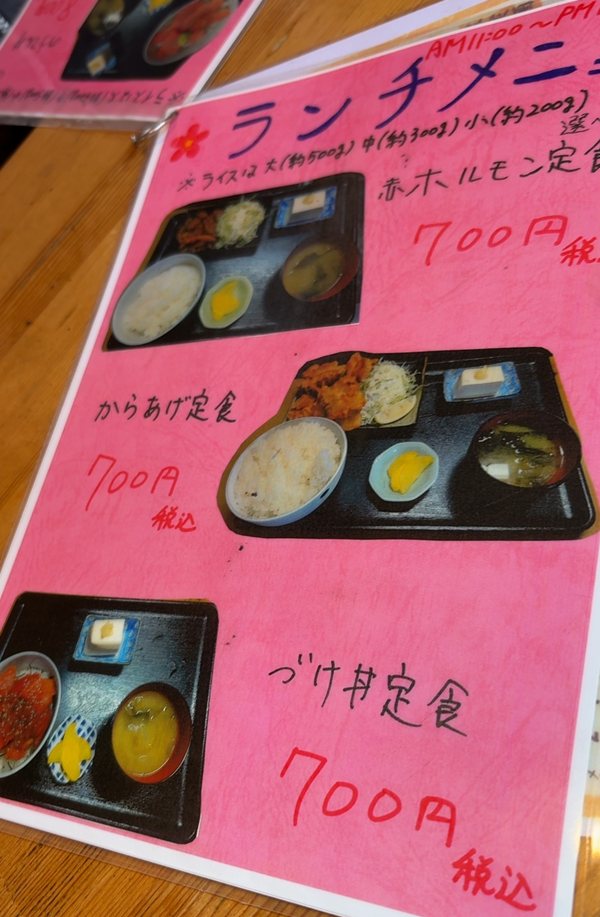 AM11:00～PM
ランチメニュ
※ライスは 大(約500g) 中(約300g) 小(約200g)
選べ
赤ホルモン定食
700円
税
からあげ定食
700円
税込
づけ丼定食
700円
税込